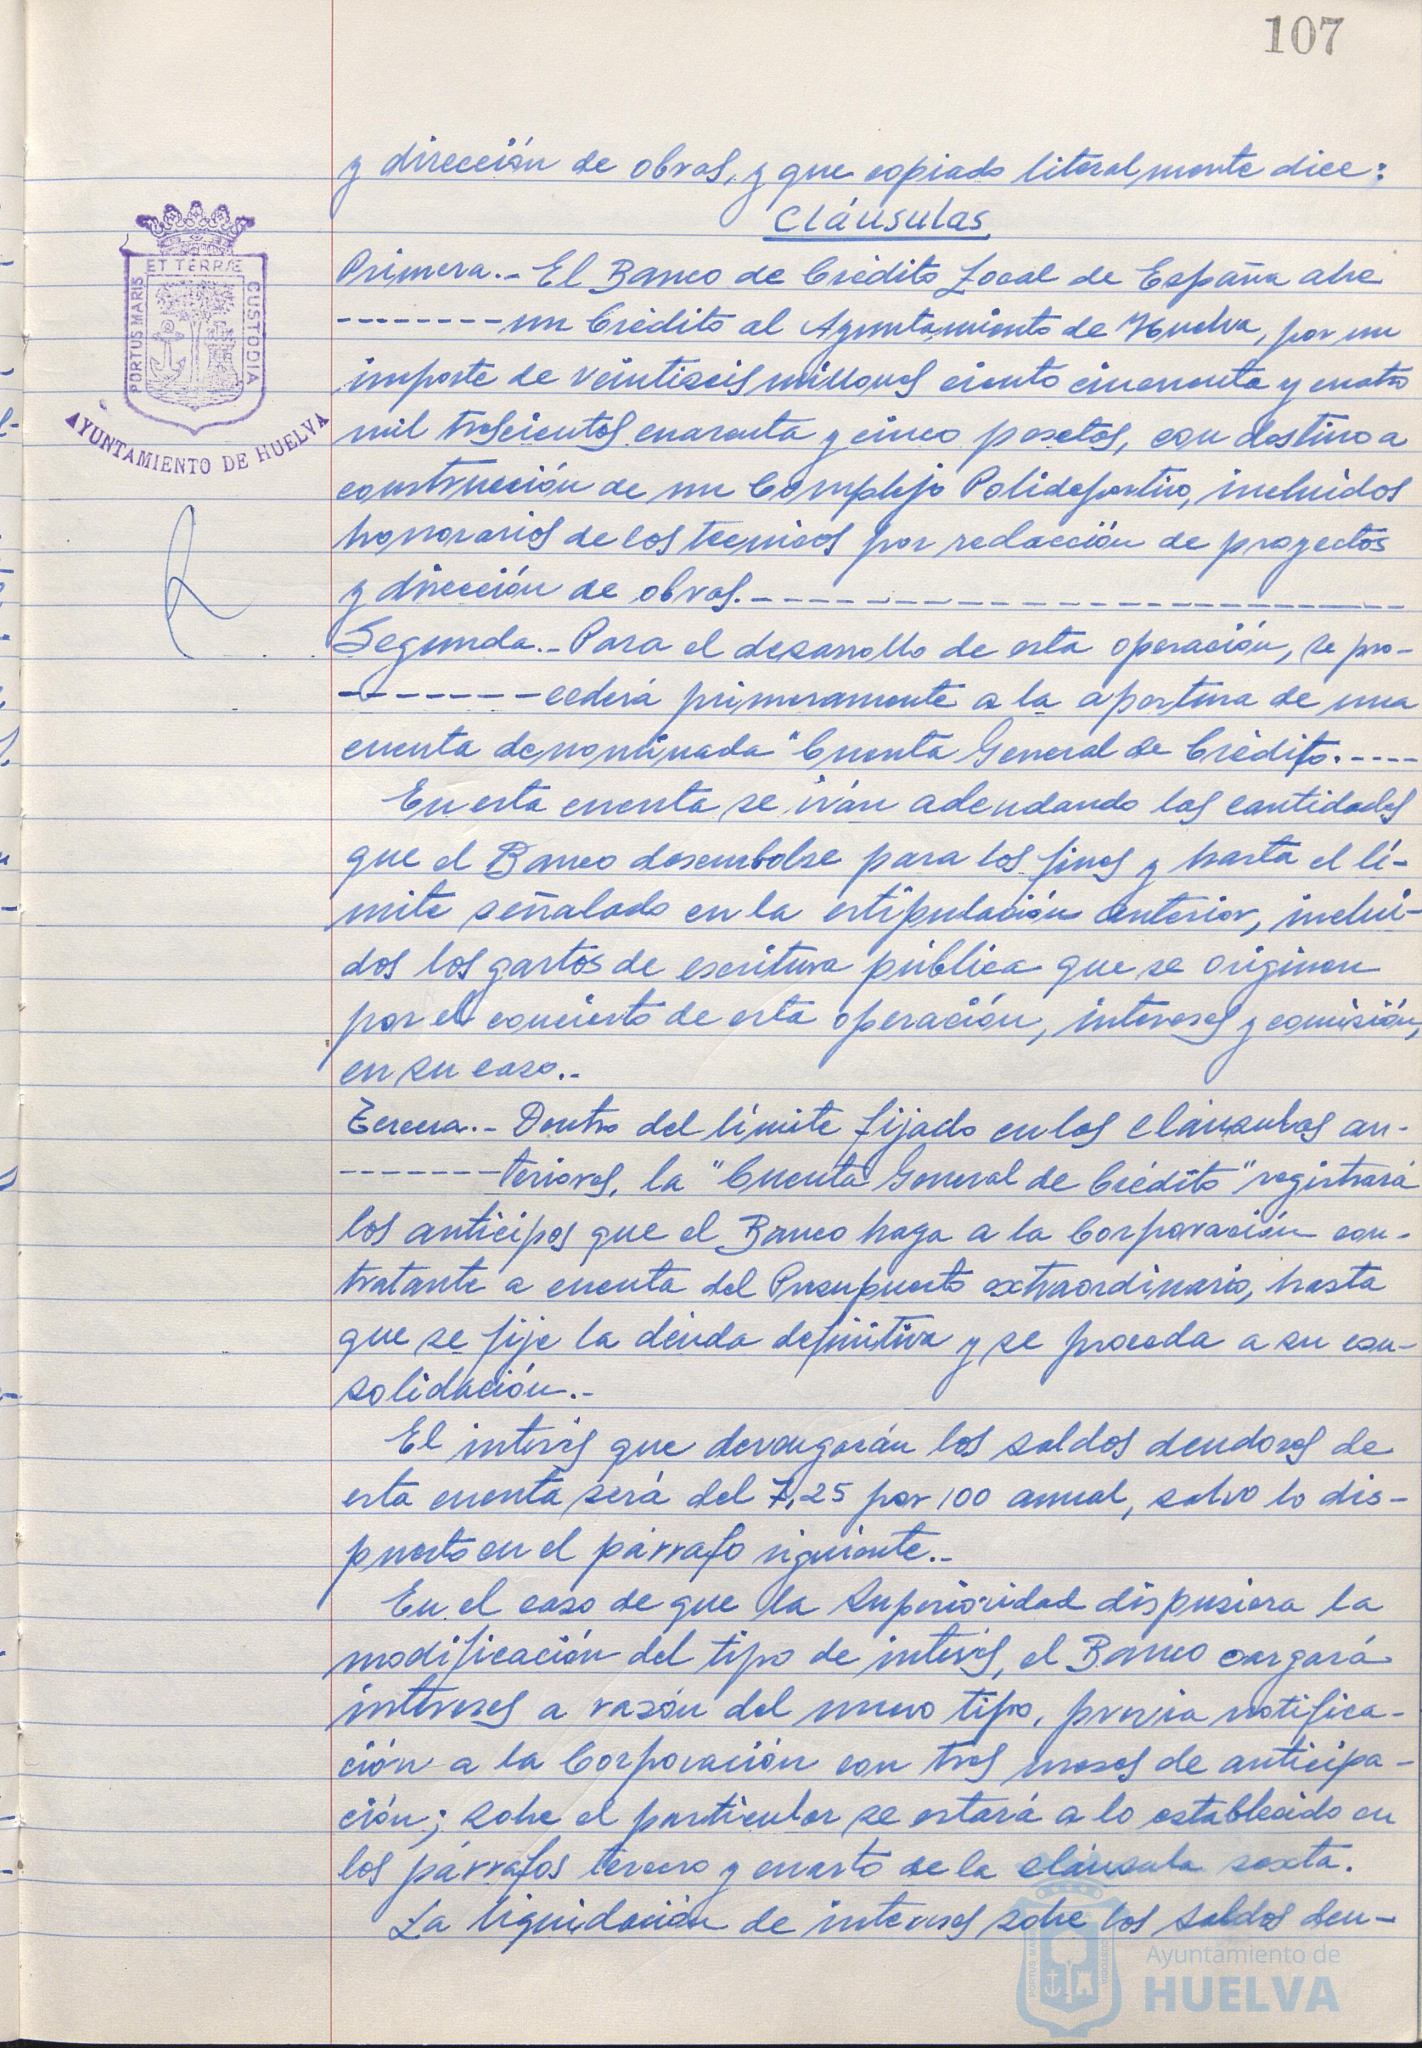 107
y dirección de obras, y que copiado literalmente dice:
Cláusulas
Primera.- El Banco de Crédito Local de España abre
-------- un Crédito al Ayuntamiento de Huelva, por un
importe de veintiseis millones ciento cincuenta y cuatro
mil trescientos cuarenta y cinco pesetas, con destino a
construcción de un Complejo Polideportivo, incluidos
honorarios de los tecnicos por redacción de proyectos
y dirección de obras.------------------------
Segunda.- Para el desarrollo de esta operación, se pro-
-------- cederá primeramente a la apertura de una
cuenta denominada "Cuenta General de Crédito.----
En esta cuenta se irán adeudando las cantidades
que el Banco desembolse para los fines y hasta el lí-
mite señalado en la estipulación anterior, inclui-
dos los gastos de escritura pública que se originen
por el concierto de esta operación, intereses y comisión,
en su caso.-
Tercera.- Dentro del límite fijado en las cláusulas an-
-------- teriores, la "Cuenta General de Crédito" registrará
los anticipos que el Banco haga a la Corporación con-
tratante a cuenta del Presupuesto extraordinario, hasta
que se fije la deuda definitiva y se proceda a su con-
solidación.-
El interés que devengarán los saldos deudores de
esta cuenta será del 7,25 por 100 anual, salvo lo dis-
puesto en el párrafo siguiente.-
En el caso de que la Superioridad dispusiera la
modificación del tipo de interés, el Banco cargará
intereses a razón del nuevo tipo, previa notifica-
ción a la Corporación con tres meses de anticipa-
ción; sobre el particular se estará a lo establecido en
los párrafos tercero y cuarto de la cláusula sexta.
La liquidación de intereses sobre los saldos deu-
PORTUS MARIS
ET TERRÆ
CUSTODIA
AYUNTAMIENTO DE HUELVA
Ayuntamiento de
HUELVA